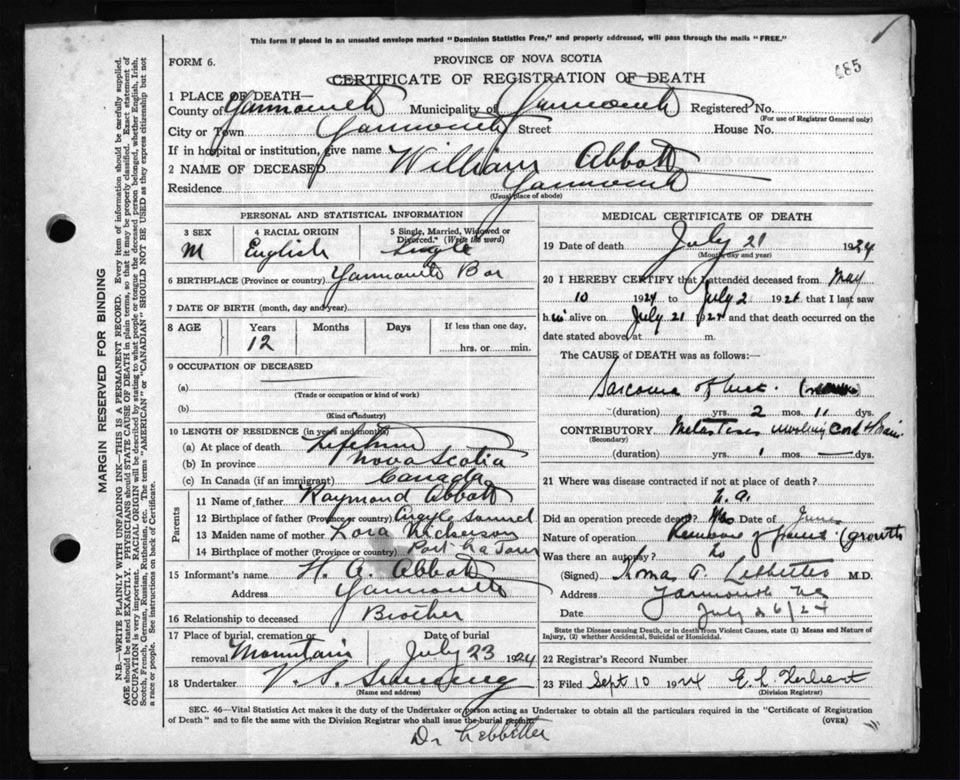 This form if placed in an unsealed envelope marked "Dominion Statistics Free," and properly addressed, will pass through the mails "FREE."
FORM 6.
PROVINCE OF NOVA SCOTIA
485
CERTIFICATE OF REGISTRATION OF DEATH
1 PLACE OF DEATH—
County of Yarmouth Municipality of Yarmouth Registered No.
(For use of Registrar General only)
City or Town Yarmouth Street House No.
If in hospital or institution, give name
2 NAME OF DECEASED William Abbott
Residence Yarmouth
(Usual place of abode)
PERSONAL AND STATISTICAL INFORMATION
3 SEX 4 RACIAL ORIGIN 5 Single, Married, Widowed or Divorced." (Write the word)
M English Single
6 BIRTHPLACE (Province or country) Yarmouth Bar
7 DATE OF BIRTH (month, day and year)
8 AGE Years Months Days If less than one day,
12 hrs. or min.
9 OCCUPATION OF DECEASED
(a)
(Trade or occupation or kind of work)
(b)
(Kind of industry)
10 LENGTH OF RESIDENCE (in years and months)
(a) At place of death Lifetime
(b) In province Nova Scotia
(c) In Canada (if an immigrant) Canada
Parents
11 Name of father Raymond Abbott
12 Birthplace of father (Province or country) Argyle Sound
13 Maiden name of mother Lora Nickerson
14 Birthplace of mother (Province or country) Port La Tour
15 Informant's name H. A. Abbott
Address Yarmouth
16 Relationship to deceased Brother
17 Place of burial, cremation or removal Mountain Date of burial July 23 1924
18 Undertaker V. S.
(Name and address)
MEDICAL CERTIFICATE OF DEATH
19 Date of death July 21 1924
(Month, day and year)
20 I HEREBY CERTIFY that I attended deceased from May
10 1924 to July 2 192 that I last saw
h alive on July 21 1924 and that death occurred on
date stated above, at m.
The CAUSE of DEATH was as follows:
Sarcoma of
(duration) yrs. 2 mos. 11 dys.
CONTRIBUTORY Metastases involving Cord & Brain
(Secondary)
(duration) yrs. 1 mos. — dys.
21 Where was disease contracted if not at place of death?
N.A.
Did an operation precede death? Date of June
Nature of operation Removal of (growth
Was there an autopsy? No
(Signed) A. Lebbetter M.D.
Address Yarmouth NS
Date July 26/24
State the Disease causing Death, or in death from Violent Causes, state (1) Means and Nature of Injury, (2) whether Accidental, Suicidal or Homicidal.
22 Registrar's Record Number
23 Filed Sept 10 1924 E. L. Herbert
(Division Registrar)
SEC. 46—Vital Statistics Act makes it the duty of the Undertaker or person acting as Undertaker to obtain all the particulars required in the "Certificate of Registration
of Death" and to file the same with the Division Registrar who shall issue the burial permit. (OVER)
Dr Lebbetter
MARGIN RESERVED FOR BINDING
N.B.—WRITE PLAINLY WITH UNFADING INK—THIS IS A PERMANENT RECORD. Every item of information should be carefully supplied.
AGE should be stated EXACTLY. PHYSICIANS should STATE CAUSE OF DEATH in plain terms, so that it may be properly classified. Exact statement of
OCCUPATION is very important. RACIAL ORIGIN will be described by stating to what people or tongue the deceased person belonged, whether English, Irish,
Scotch, French, German, Russian, Ruthenian, etc. The terms "AMERICAN" or "CANADIAN" SHOULD NOT BE USED as they express citizenship but not
a race or people. See instructions on back of Certificate.